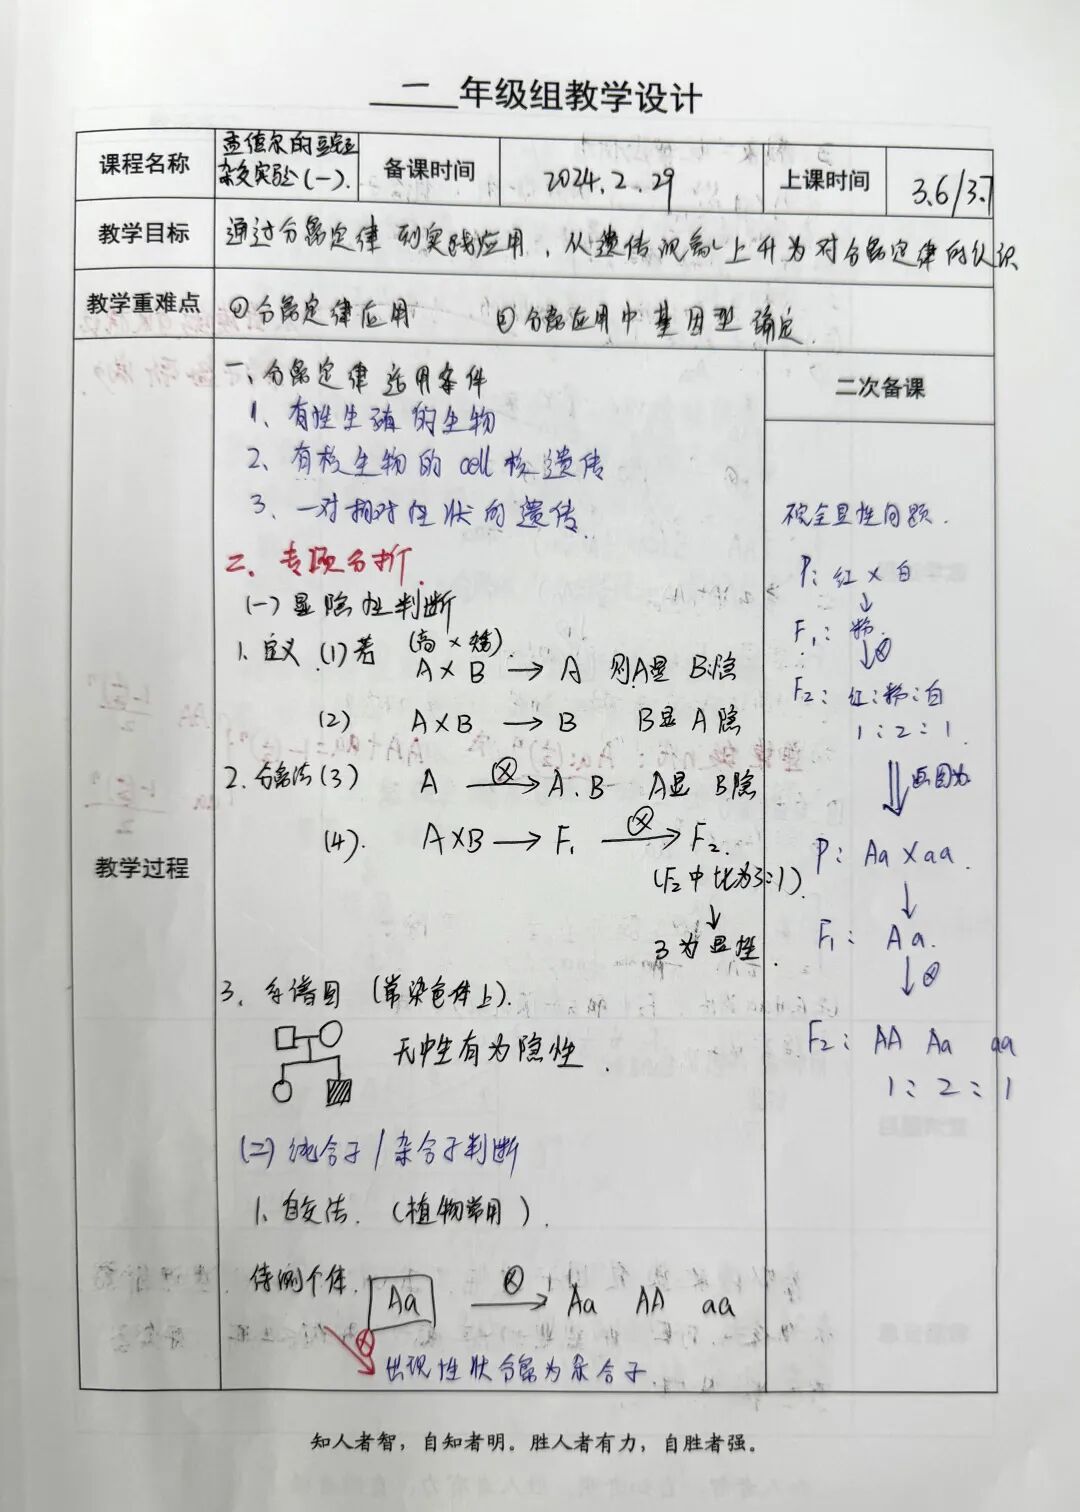 二 年级组教学设计
课程名称 孟德尔的豌豆杂交实验(一). 备课时间 2024.2.29 上课时间 3.6/3.7
教学目标 通过分离定律到实践应用,从遗传现象上升为对分离定律的认识
教学重难点 ①分离定律应用 ②分离应用中基因型确定.
教学过程
一、分离定律适用条件
1、有性生殖的生物
2、有核生物的cell核遗传
3、一对相对性状的遗传.
二、专项分析.
(一)显隐性判断
1、定义 (1)若 (高×矮)
A×B → A 则A显 B隐
(2) A×B → B B显A隐
2.分离法(3) A ⊗→ A、B A显 B隐
(4). A×B → F₁ ⊗→ F₂.
(F₂中比为3:1).
↓
3为显性.
3、系谱图 (常染色体上).
无中生有为隐性.
(二)纯合子/杂合子判断
1、自交法.(植物常用).
待测个体. Aa ⊗→ Aa AA aa
⊗ 出现性状分离为杂合子.
二次备课
不完全显性问题.
P: 红×白
↓
F₁: 粉.
↓⊗
F₂: 红:粉:白
1:2:1.
P: Aa×aa.
↓
F₁: Aa.
↓⊗
F₂: AA Aa aa
1:2:1
知人者智,自知者明。胜人者有力,自胜者强。